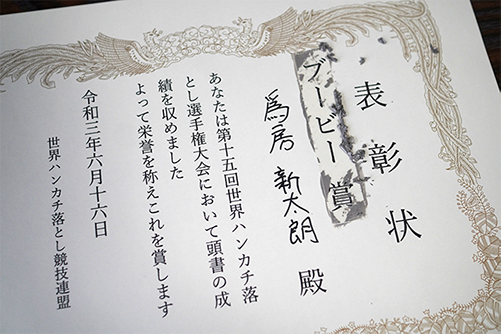 表彰状
ブービー賞
爲房 新太朗 殿
あなたは第十五回世界ハンカチ落
とし選手権大会において頭書の成
績を収めました
よって栄誉を称えこれを賞します
令和三年六月十六日
世界ハンカチ落とし競技連盟